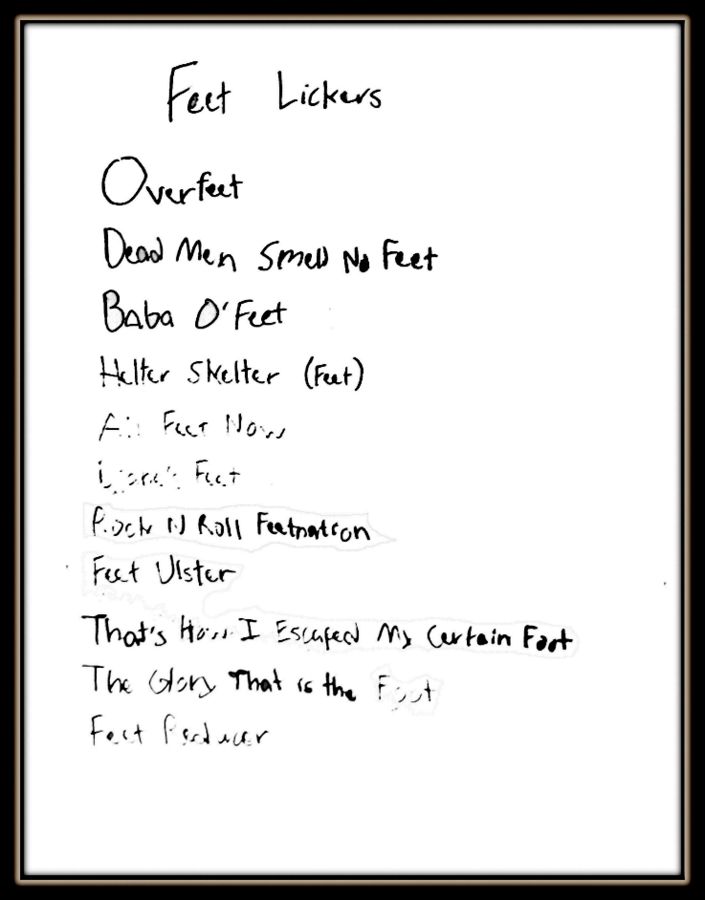 Feet Lickers
Overfeet
Dead Men Smell No Feet
Baba O'Feet
Helter Skelter (Feet)
Feet Now
Feet
Rock N Roll Feetnation
Feet Ulster
That's How I Escaped My Certain Foot
The Glory That is the Foot
Feet Producer